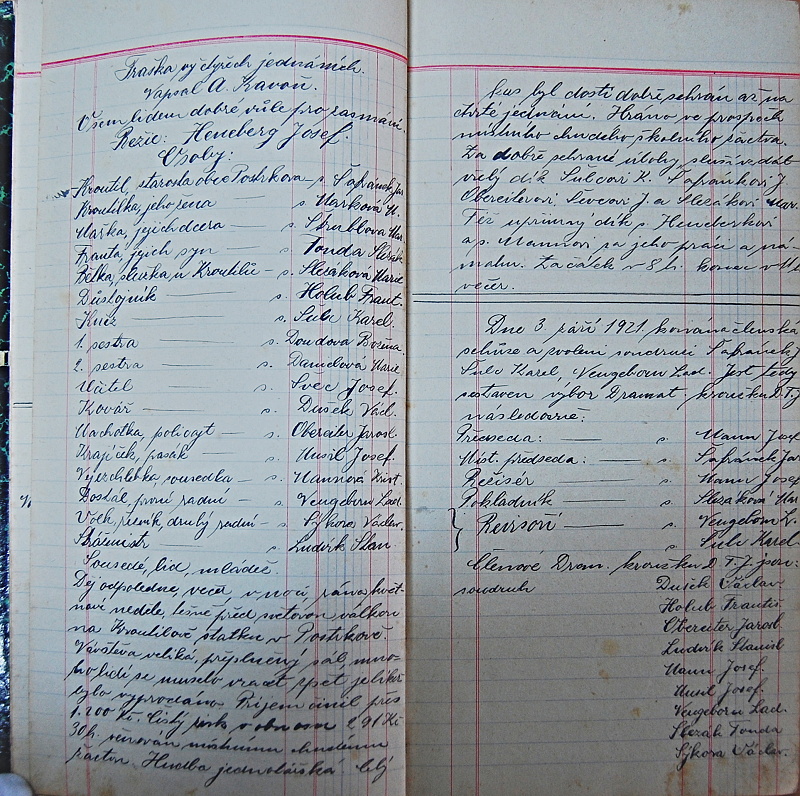 Fraška v čtyřech jednáních.
Napsal A. Kavoň.
Všem lidem dobré vůle pro zasmání.
Režie: Heneberg Josef.
Osoby:
Kroutil, starosta obce Postrkova s. Šafránek Jar
Kroutilka, jeho žena s. Marková M.
Mařka, jejich dcera s. Skrublova Mar
Franta, jejich syn s. Tonda Slezak
Bětka, služka u Kroutilů s. Slezakova Marie
Důstojník s. Holub Frant.
Kněz s. Šulc Karel.
1. sestra s. Doudova Božena.
2. sestra s. Danelová Marie
Učitel s. Švec Josef.
Kovář s. Dušek Václ.
Machotka, policajt s. Obereiter Jarosl.
Krajíček, pasák s. Musil Josef.
sousedka s. Mannová Krist.
Dostál, první radní s. Vengeborn Lad.
řezník, druhý radní s. Sýkora Václav.
Strážmistr s. Ludvík Stan.
Sousedé, lid, mládež.
Děj odpoledne, večer, v noci, ráno květ-
nové neděle, těsně před světovou válkou
na Kroutilově statku v Postrkově.
Návštěva veliká, přeplněný sál, mno-
ho lidí se muselo vracet zpět jelikož
bylo vyprodáno. Příjem činil přes
1.200 Kč. Čistý v obnosu 291 Kč
30 h. věnován místnímu chudému
žactvu. Hudba jednotářská. Celý
kus byl dosti dobře sehrán až na
čtvrté jednání. Hráno ve prospěch
místního chudého školního žactva.
Za dobře sehrané úlohy sluší vzdát
vřelý dík Šulcovi K. Šafránkovi J.
Obereiterovi, Ševcovi J. a Slezákovi Mar.
Též upřímný dík s.
a s. Mannovi za jeho práci a ná-
mahu. Začátek v 8 h. konec v 11
večer.
Dne 3. září 1921 konána členská
schůze a zvoleni soudruzi Šafránek J
Šulc Karel, Vengeborn Lad. Jest tedy
sestaven výbor Dramat. kroužku D.T.J.
následovně:
Předseda: s. Mann Josef
Míst. předseda: s. Šafránek Jar
Režisér s. Mann Josef
Pokladník s. Slezáková Mar
Revisoři s. Vengeborn L.
Šulc Karel
Členové Dram. kroužku D.T.J. jsou:
soudruh Dušek Václav
Holub Františ
Obereiter Jarosl.
Ludvík Stanisl
Mann Josef.
Musil Josef.
Vengeborn Lad.
Slezák Tonda
Sýkora Václav.